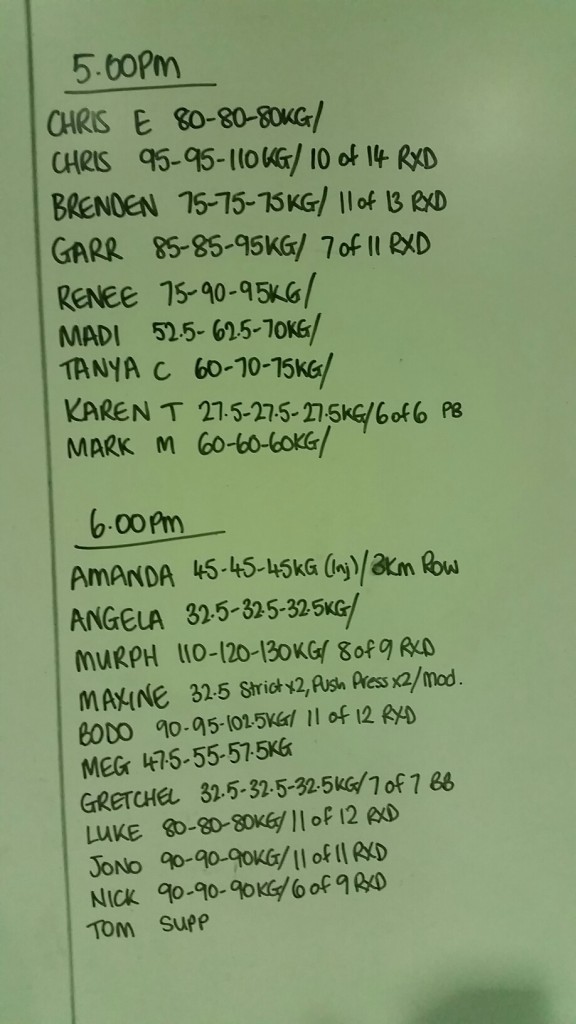 5.00PM
CHRIS E 80-80-80KG/
CHRIS 95-95-110KG/ 10 of 14 RXD
BRENDEN 75-75-75KG/ 11 of 13 RXD
GARR 85-85-95KG/ 7 of 11 RXD
RENEE 75-90-95KG/
MADI 52.5-62.5-70KG/
TANYA C 60-70-75KG/
KAREN T 27.5-27.5-27.5KG/6 of 6 PB
MARK M 60-60-60KG/
6.00PM
AMANDA 45-45-45KG (Inj)/3Km Row
ANGELA 32.5-32.5-32.5KG/
MURPH 110-120-130KG/ 8 of 9 RXD
MAXINE 32.5 Strict x2, Push Press x2/Mod.
BODO 90-95-102.5KG/ 11 of 12 RXD
MEG 47.5-55-57.5KG
GRETCHEL 32.5-32.5-32.5KG/7 of 7 BB
LUKE 80-80-80KG/11 of 12 RXD
JONO 90-90-90KG/11 of 11 RXD
NICK 90-90-90KG/6 of 9 RXD
TOM SUPP